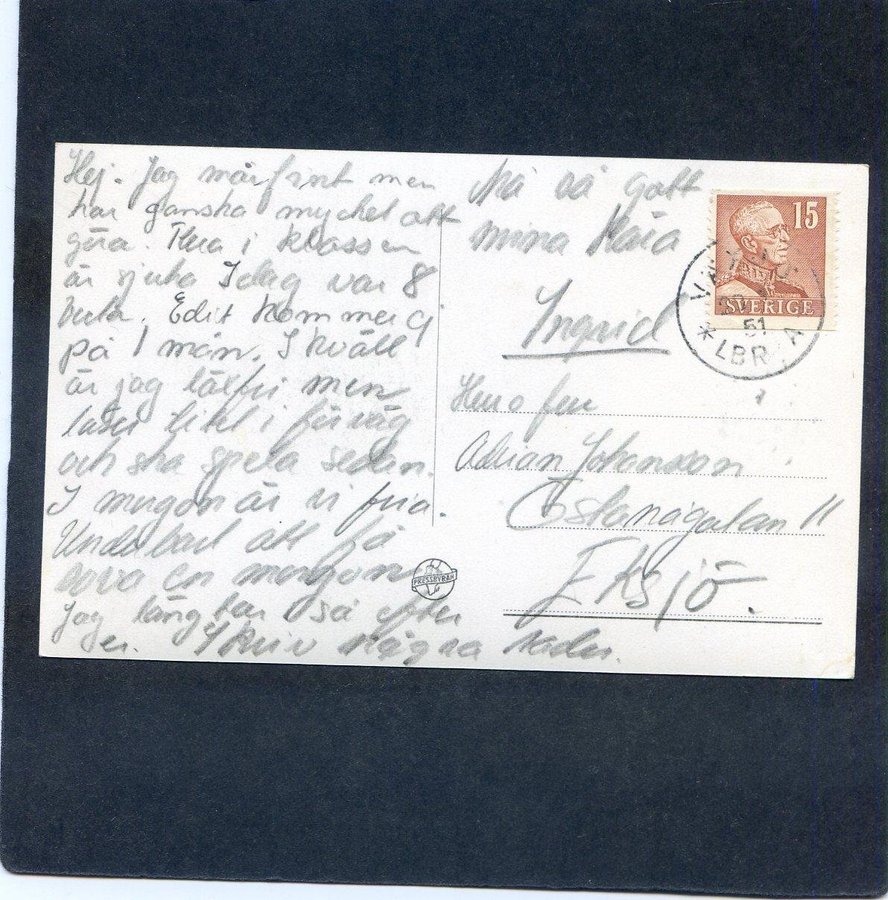 Hej. Jag mår fint men
har ganska mycket att
göra. Flera i klassen
är sjuka Idag var 8
borta. Edit kommer ej
på 1 mån. I kväll
är jag men
läser litet i förväg
och ska spela sedan.
I morgon är vi fria.
Underbart att få
sova en morgon
Jag längtar så efter
er. Skriv några rader.
Må så gott
mina kära
Ingrid
15
SVERIGE
51
LBR A
PRESSBYRÅN
Herr o fru
Adrian Johansson
Östanågatan 11
Eksjö.